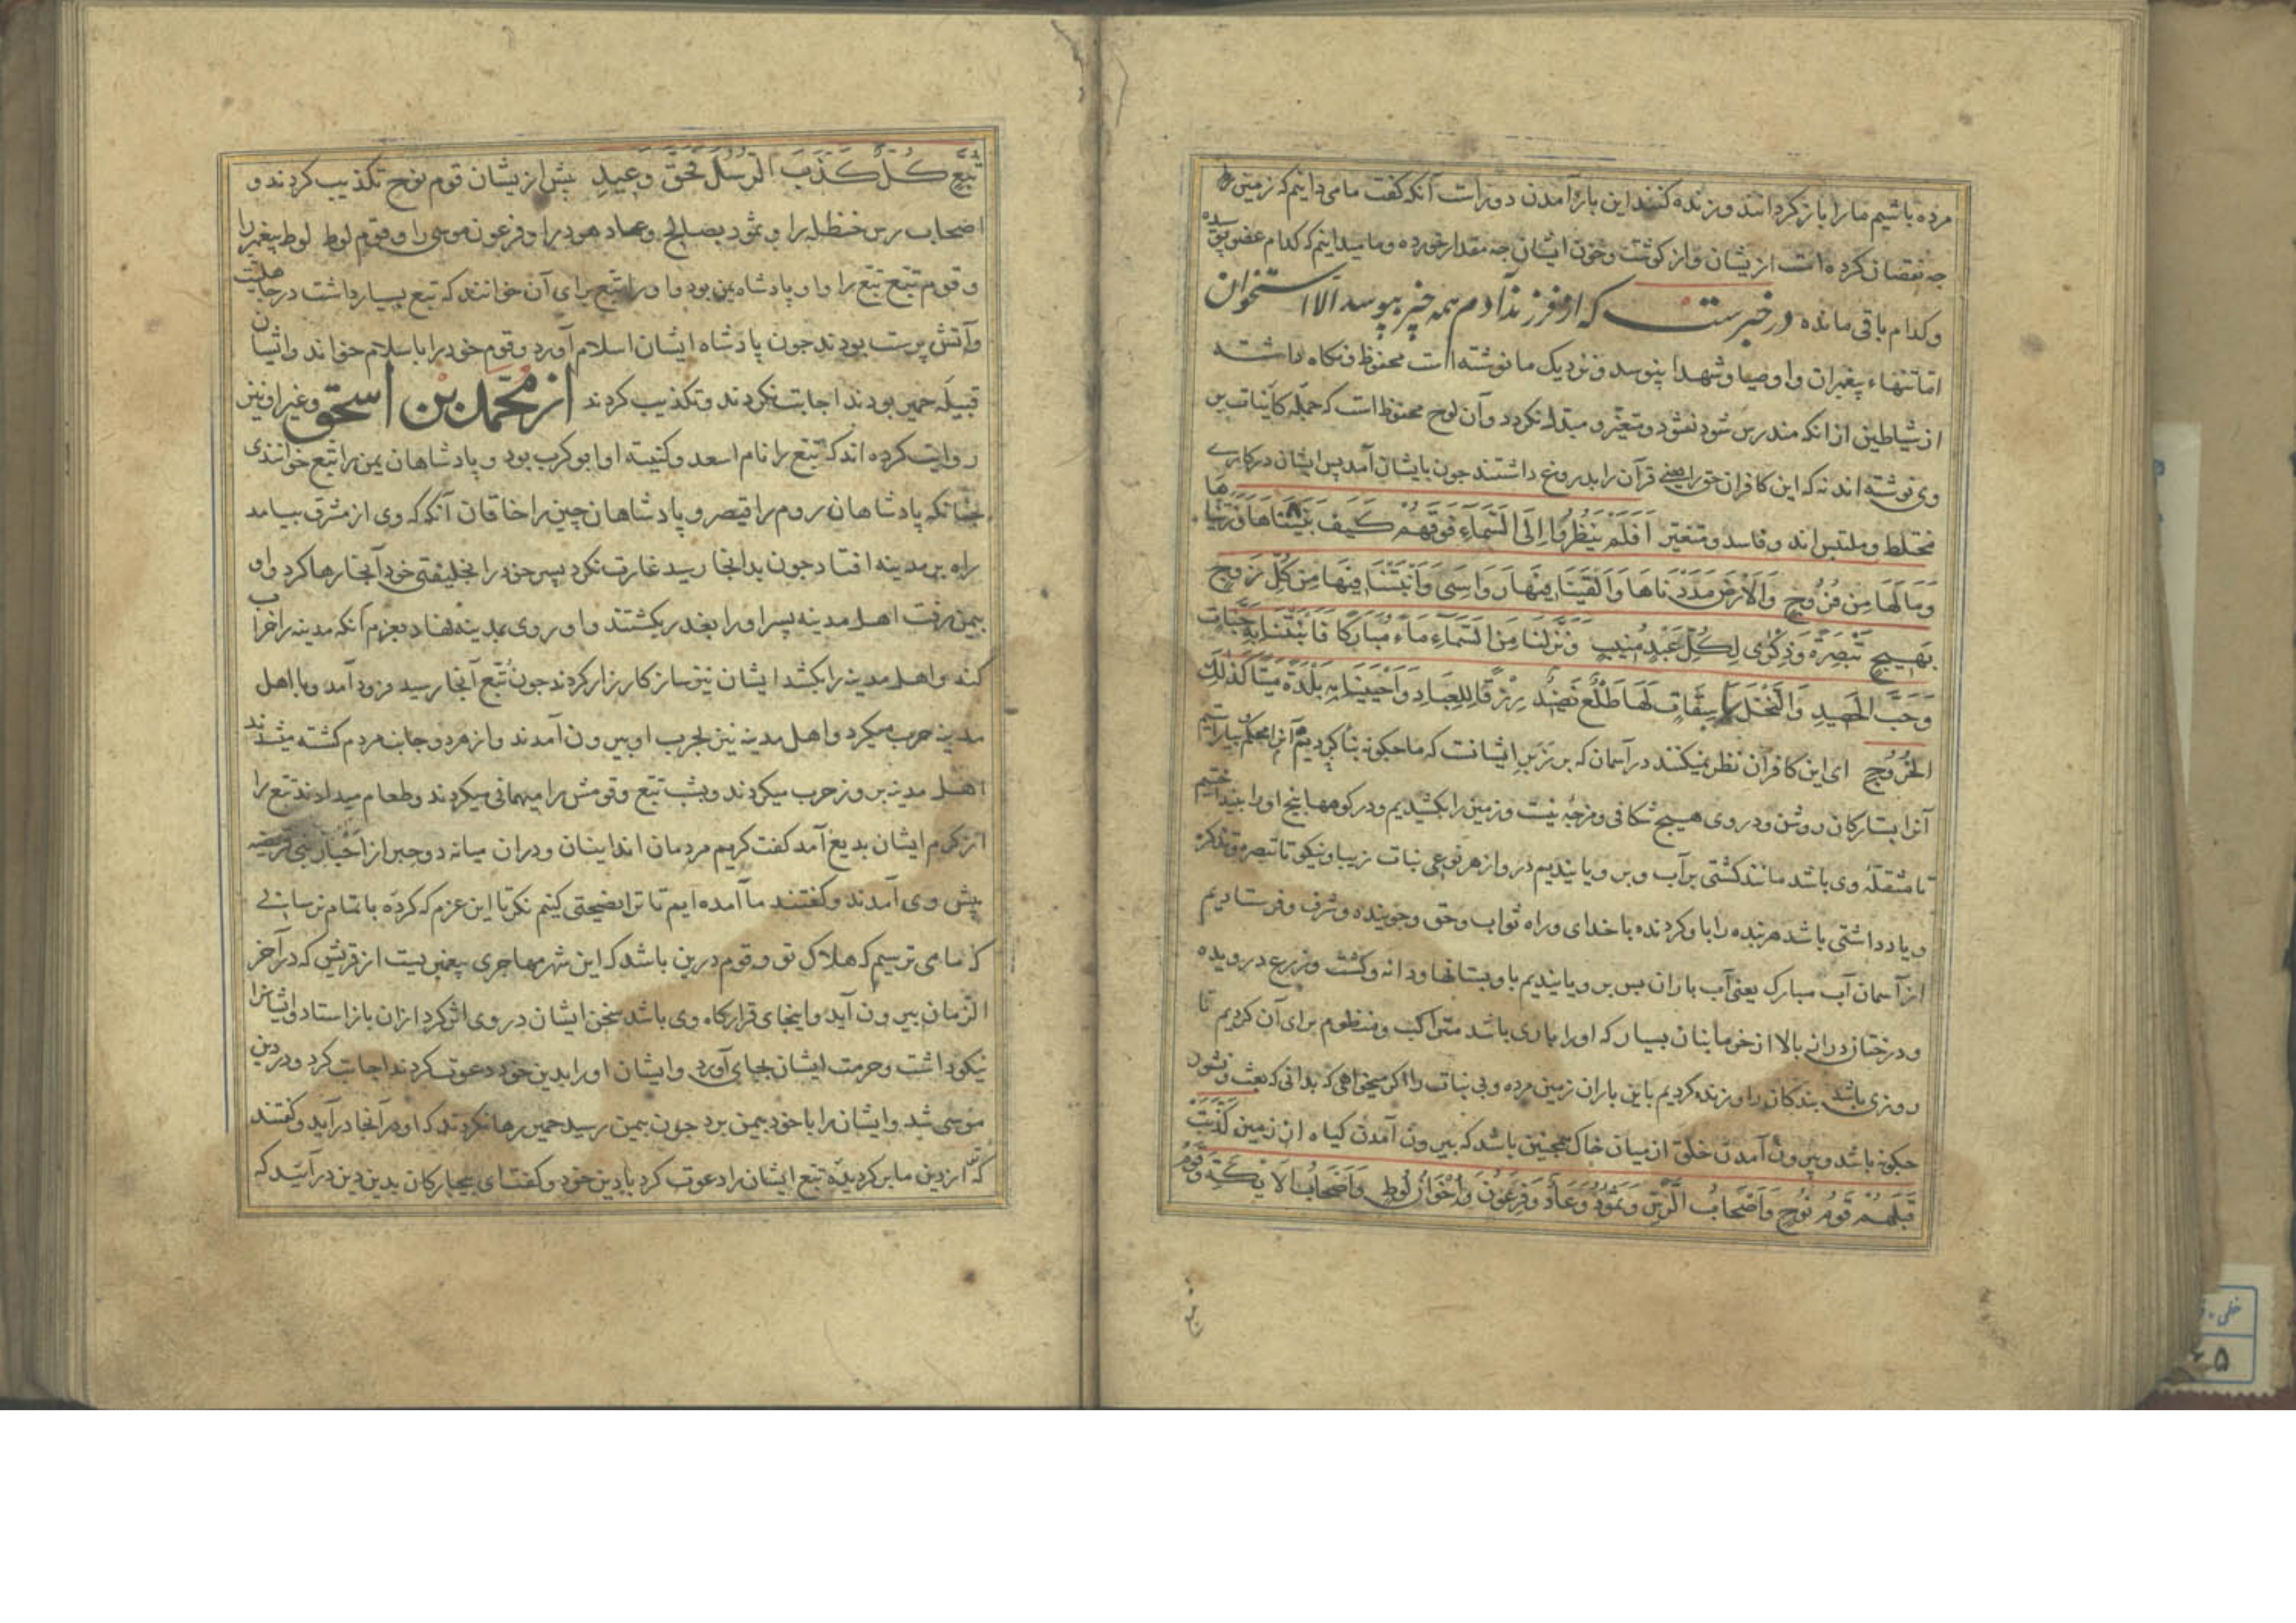 مرده باشیم ما را باز کردانند و زنده کنند این باز آمدن دورا ست آنکه کفت ما می دانیم که زمین
جه نقصان کرده است از یشان و از کوشت و خون ایشان جه مقدار خورده و ما میدانیم که کدام عضو پوسیده
و کدام باقی مانده در خبرست که از فرزند آدم همه چیز بپوسد الا استخوان
اما تنهاء پیغمبران و اوصیا و شهدا بنپوسد و نزدیک ما نوشته است محفوظ و نکاه داشته
از شیاطین از انکه مندرس شود نشود و متغیر و مبتدل نکردد و آن لوح محفوظ است که جمله کاینات بر
وی نوشته اند نه که این کافران حق را یعنی قرآن را بدروغ داشتند جون بایشان آمد پس ایشان در کاری
مختلط و ملتبس اند و فاسد و متغیر اَفَلَمْ یَنْظُرُوا اِلَی السَّمَآءِ فَوْقَهُمْ کَیْفَ بَنَیْنَاهَا وَزَیَّنَّاهَا
وَمَا لَهَا مِنْ فُرُوجٍ وَالْاَرْضَ مَدَدْنَاهَا وَاَلْقَیْنَا فِیهَا رَوَاسِیَ وَاَنْبَتْنَا فِیهَا مِنْ کُلِّ زَوْجٍ
بَهِیجٍ تَبْصِرَةً وَذِکْرَی لِکُلِّ عَبْدٍ مُنِیبٍ وَنَزَّلْنَا مِنَ السَّمَآءِ مَاءً مُبَارَکًا فَاَنْبَتْنَا بِهِ جَنَّاتٍ
وَحَبَّ الْحَصِیدِ وَالنَّخْلَ بَاسِقَاتٍ لَهَا طَلْعٌ نَضِیدٌ رِزْقًا لِلْعِبَادِ وَاَحْیَیْنَا بِهِ بَلْدَةً مَیْتًا کَذَلِکَ
الْخُرُوجُ ای این کافران نظر نمیکنند در آسمان که بر زبر ایشانست که ما جکونه بنا کردیم آنرا محکم و بیاراستیم
آنرا بستارکان روشن و در وی هیچ شکافی و فرجه نیست و زمین را بکشیدیم و در کوهها بیخ او را بینداختیم
تا مثقله وی باشد مانند کشتی بر آب و برویانیدیم درو از هر نوعی نبات زیبا و نیکو تا تبصره و تذکره
و یاد داشتی باشد هر بنده را با و کردنده با خدای و راه ثواب و حق و جوینده و شرف و فرستادیم
از آسمان آب مبارک یعنی آب باران پس برویانیدیم باو بستانها و دانه و کشت و زرع درویده
و درختان درانه بالا از خرما بنان بسیار که او را باری باشد متراکب و منظوم برای آن کردیم تا
روزی باشد بندکان را و زنده کردیم باین باران زمین مرده و بی نبات را اکر میخواهی که بدانی که بعث و نشور
جکونه باشد و بیرون آمدن خلق از میان خاک همچنین باشد که بیرون آمدن کیاه از زمین کَذَّبَتْ
قَبْلَهُمْ قَوْمُ نُوحٍ وَاَصْحَابُ الرَّسِّ وَثَمُودُ وَعَادٌ وَفِرْعَوْنُ وَاِخْوَانُ لُوطٍ وَاَصْحَابُ الْاَیْکَةِ وَقَوْمُ
تُبَّعٍ کُلٌّ کَذَّبَ الرُّسُلَ فَحَقَّ وَعِیدِ پیش از یشان قوم نوح تکذیب کردند و
اصحاب رس حنظله را و ثمود بصالح و عاد هود را و فرعون موسی را و قوم لوط لوط پیغمبر را
و قوم تبع تبع را و او پادشاه یمن بود و او را تبع برای آن خوانند که تبع بسیار داشت در جاهلیت
و آتش پرست بودند جون پادشاه ایشان اسلام آورد و قوم خود را باسلام خواند و ایشان
قبیله حمیر بودند اجابت نکردند و تکذیب کردند از محمد بن اسحق و غیر او نیز
روایت کرده اند که تبع را نام اسعد و کنیته او ابو کرب بود و پادشاهان یمن را تبع خوانندی
جنانکه پادشاهان روم را قیصر و پادشاهان چین را خاقان آنکه که وی از مشرق بیامد
راه بر مدینه افتاد جون بدانجا رسید غارت نکرد پسر خود را بخلیفتی خود آنجا رها کرد و او
بیمن رفت اهل مدینه پسر او را بغدر بکشتند و او روی بمدینه نهاد بعزم آنکه مدینه را خراب
کند و اهل مدینه را بکشد ایشان نیز ساز کارزار کردند جون تبع آنجا رسید فرود آمد و با اهل
مدینه حرب میکرد و اهل مدینه نیز بحرب او بیرون آمدند و از هر دو جانب مردم کشته میشدند
اهل مدینه بروز حرب میکردند و بشب تبع و قومش را میهمانی میکردند و طعام میدادند تبع را
از کرم ایشان بدیع آمد کفت کریم مردمان اند اینان و در ان میانه دو حبر از احبار بنی قریضه
پیش وی آمدند و کفتند ما آمده ایم تا ترا نصیحتی کنیم نکر تا این عزم که کرده باتمام نرسانی
که ما می ترسیم که هلاک تو و قوم درین باشد که این شهر مهاجری پیغمبریست از قریش که در آخر
الزمان بیرون آید و اینجای قرارکاه وی باشد سخن ایشان در وی اثر کرد از ان باز استاد و ایشانرا
نیکو داشت و حرمت ایشان بجای آورد و ایشان او را بدین خود دعوت کردند اجابت کرد و در دین
موسی شد و ایشان را با خود بیمن برد جون بیمن رسید حمیر رها نکردند که او در آنجا در آید و کفتند
که از دین ما بر کردیده تبع ایشان را دعوت کرد با دین خود و کفت ای بیجارکان بدین دین در آئید که